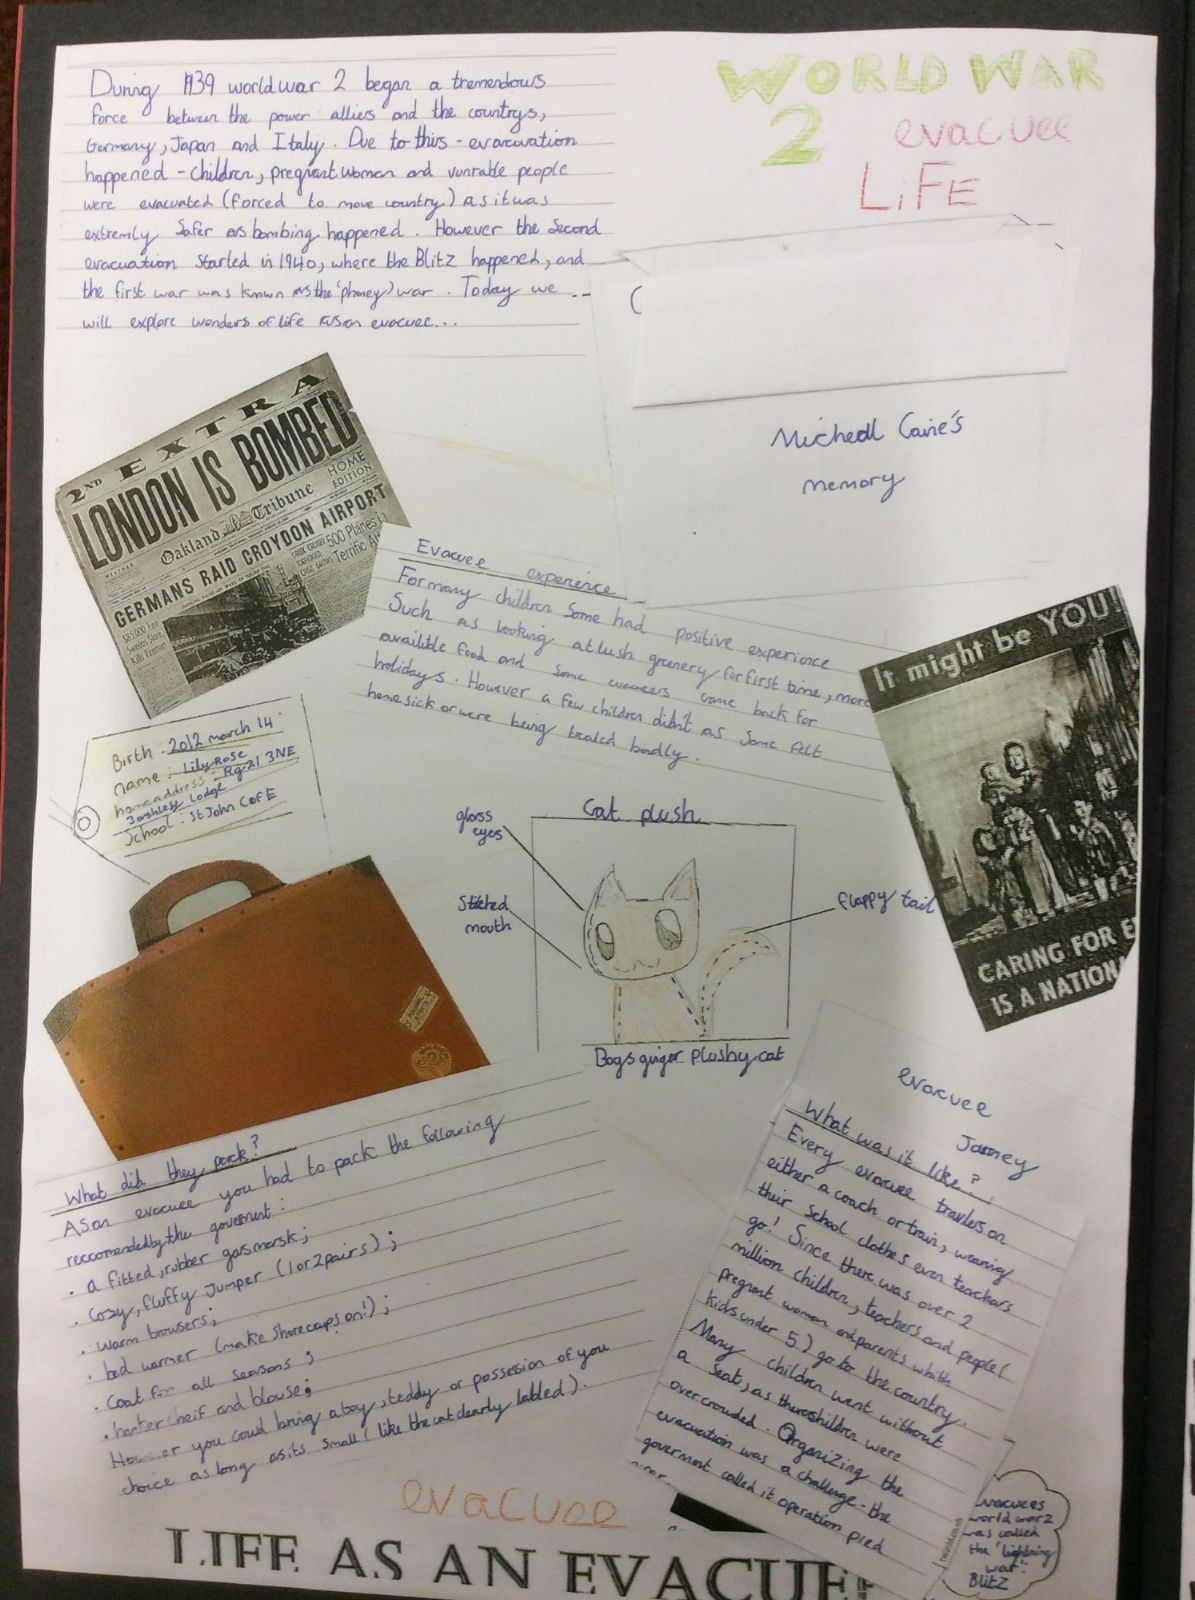 During 1939 world war 2 began a tremendows
force between the power allies and the countrys,
Germany, Japan and Italy. Due to this - evacuvation
happened - children, pregnant women and vunrable people
were evacuated (forced to move country) as it was
extremly safer as bombing happened. However the second
evacuation started in 1940, where the Blitz happened, and
the first war was known as the 'phoney' war. Today we
will explore wonders of life as an evacuee...
WORLD WAR
2 evacuee
LiFE
Micheal Caine's
memory
2ND EXTRA
LONDON IS BOMBED
HOME
EDITION
Oakland Tribune
GERMANS RAID CROYDON AIRPORT
500 Planes
Terrific
Evacuee experience
For many children some had positive experience
Such as looking at lush greenery for first time, more
availible food and some evacuees came back for
holidays. However a few children didn't as some felt
homesick or were being treatd badly.
It might be YOU!
CARING FOR E
IS A NATION
Birth : 2012 march 14
name : Lily Rose
home address : Rg21 3NE
Lodge
School : St John C of E
Cat plush
glass
eyes
Stitched
mouth
flappy tail
ginger plushy cat
What did they pack?
As an evacuee you had to pack the following
reccomended by the goverment :
• a fitted, rubber gasmask;
• Cosy, fluffy Jumper (1 or 2 pairs);
• warm trowsers;
• bed warmer (make shore caps on!);
• Coat for all seasons;
• hankercheif and blouse;
However you could bring a toy, teddy or possession of you
choice as long as its small (like the cat clearly labled).
evacuee
Jorney
What was it like?
Every evacuee travlers on
either a coach or train, wearing
their school clothes even teachers
go! Since there was over 2
million children, teachers and people (
pregnant woman and parents whith
kids under 5) go to the country.
Many children went without
a seat, as there children were
overcrowded. Organizing the
evacuation was a challenge - the
goverment called it operation pied
evacuee
LIFE AS AN EVACUEE
evacuees
world war 2
was called
the 'lightning
war'.
Blitz